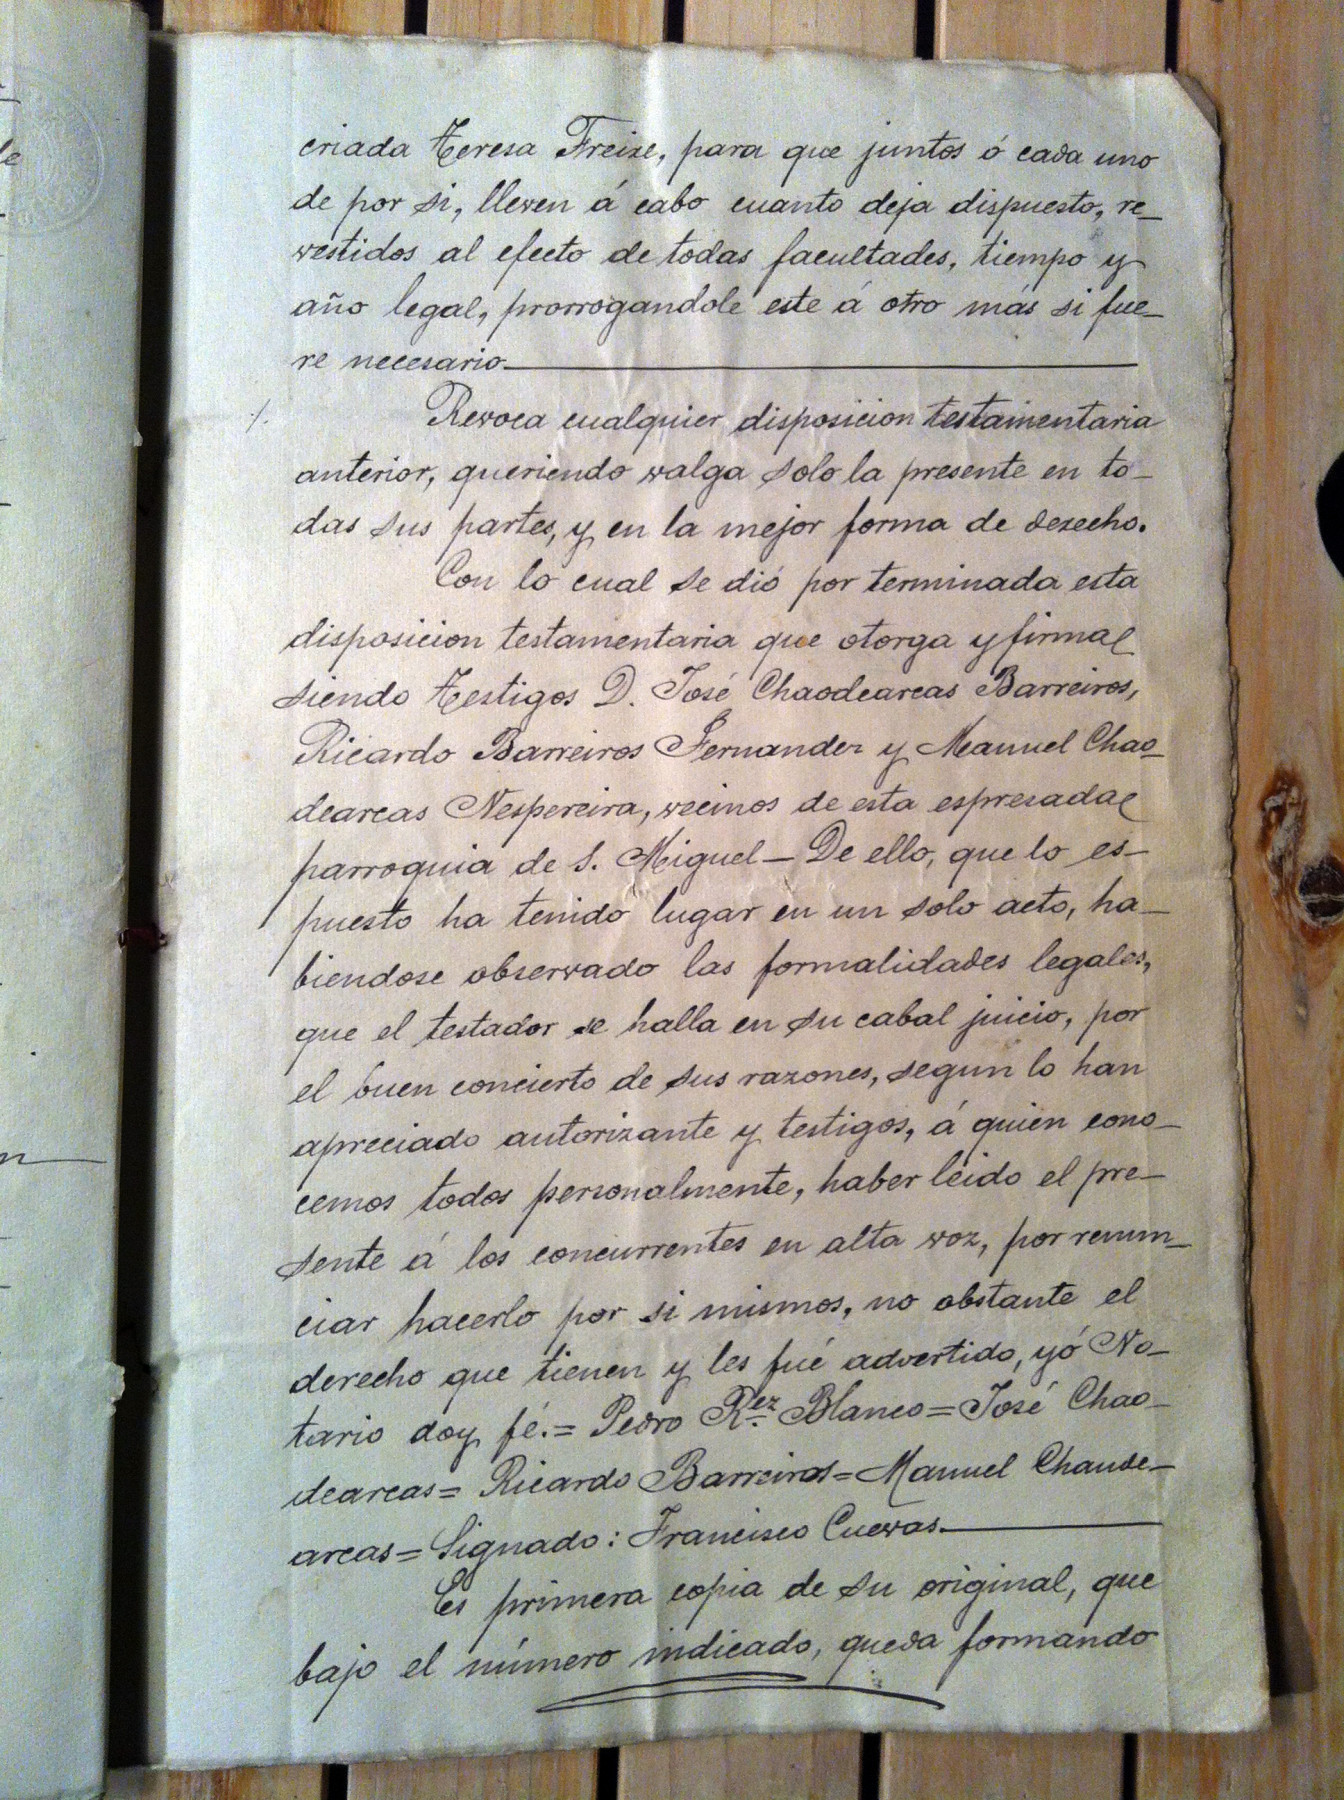 criada Teresa Freire, para que juntos ó cada uno
de por si, lleven á cabo cuanto deja dispuesto, re_
vestidos al efecto de todas facultades, tiempo y
año legal, prorrogandole este á otro más si fue_
re necesario
Revoca cualquier disposicion testamentaria
anterior, queriendo valga solo la presente en to_
das sus partes, y en la mejor forma de derecho.
Con lo cual se dió por terminada esta
disposicion testamentaria que otorga y firma
siendo testigos D. José Chaodearcas Barreiros,
Ricardo Barreiros Fernandez y Manuel Chao_
dearcas Nespereira, vecinos de esta espresada
parroquia de S. Miguel_ De ello, que lo es_
puesto ha tenido lugar en un solo acto, ha_
biendose observado las formalidades legales,
que el testador se halla en su cabal juicio, por
el buen concierto de sus razones, segun lo han
apreciado autorizante y testigos, á quien cono_
cemos todos personalmente, haber leido el pre_
sente á los concurrentes en alta voz, por renun_
ciar hacerlo por si mismos, no obstante el
derecho que tienen y les fué advertido, yó No_
tario doy fé.= Pedro Rez Blanco= José Chao_
dearcas= Ricardo Barreiros= Manuel Chaode_
arcas= Signado: Francisco Cuevas.
Es primera copia de su original, que
bajo el número indicado, queda formando